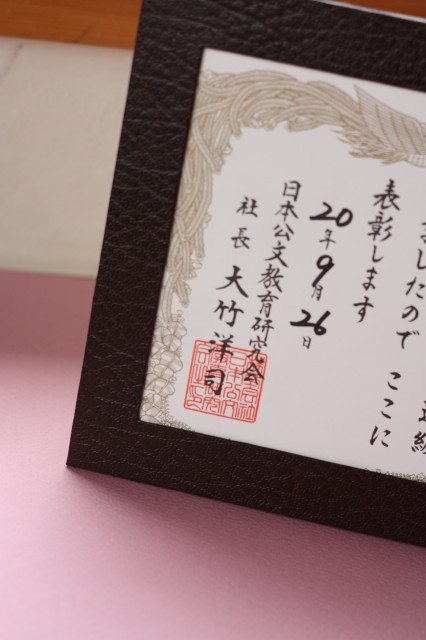 ましたので ここに
表彰します
20年9月26日
日本公文教育研究会
社長 大竹洋司